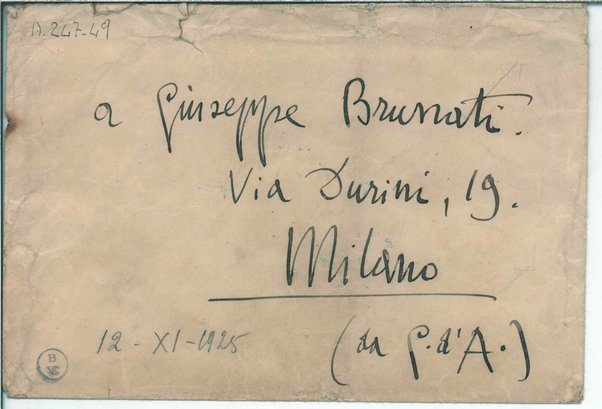 A.247-49
a Giuseppe Brunati.
Via Durini, 19.
Milano
12-XI-1925
(da G. d'A.)